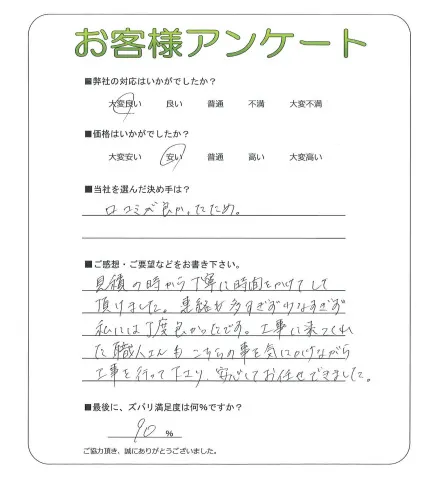 お客様アンケート
■弊社の対応はいかがでしたか？
大変良い 良い 普通 不満 大変不満
■価格はいかがでしたか？
大変安い 安い 普通 高い 大変高い
■当社を選んだ決め手は？
口コミが良かったため。
■ご感想・ご要望などをお書き下さい。
見積の時から丁寧に時間をかけてして
頂けました。連絡が多すぎず少なすぎず
私には丁度良かったです。工事に来てくれ
た職人さんも こちらの事を気にかけながら
工事を行って下さり 安心してお任せできました。
■最後に、ズバリ満足度は何％ですか？
90 ％
ご協力頂き、誠にありがとうございました。